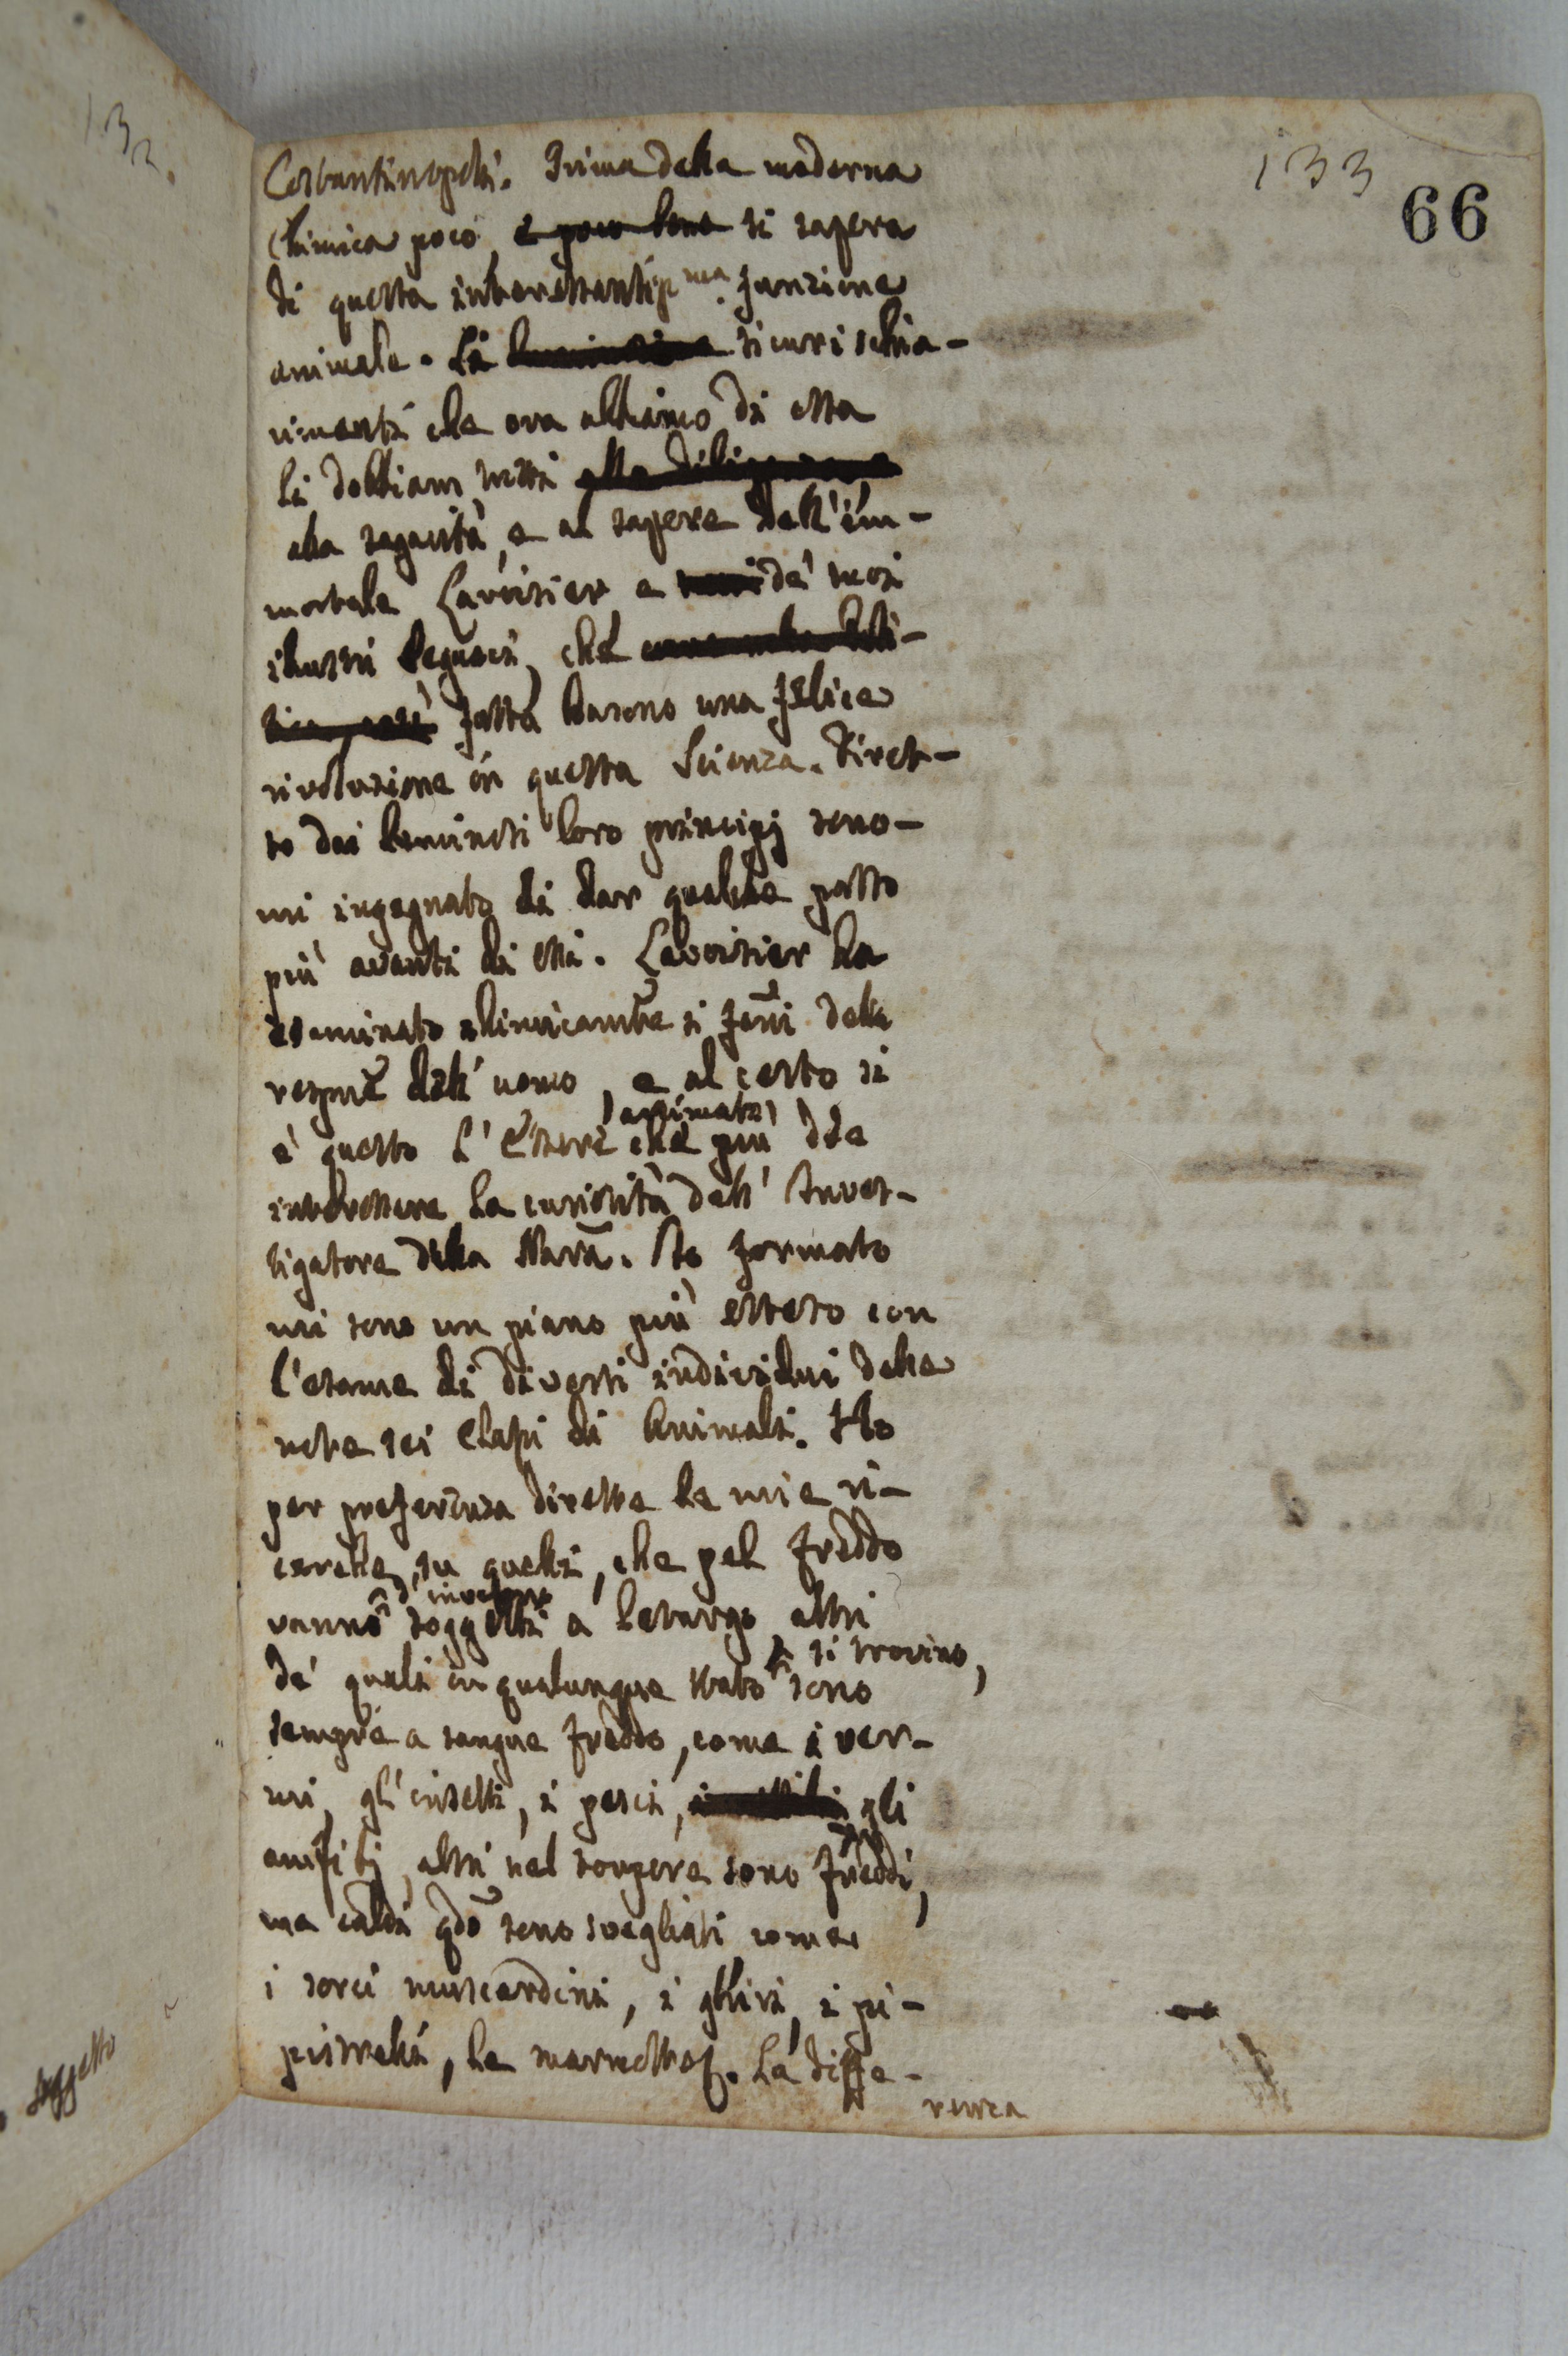 132.
133
66
Costantinopoli. Prima della moderna
Chimica poco, e poco bene si sapeva
di questa interessantiss.ma funzione
animale. Li sicuri schia-
rimenti che ora abbiamo di essa
li dobbiam tutti alla diligenza
alla sagacità, e al sapere dell' im-
mortale Lavoisier e de' suoi
illustri seguaci, che
fatta hanno una felice
rivoluzione in questa Scienza. Diret-
to dai luminosi loro principj sono-
mi ingegnato di dar qualche passo
più avanti di essi. Lavoisier ha
esaminato chimicamte i feñi della
respire dell' uomo, e al certo si
è questo l' Essere (animato) che più dee
interessare la curiosità dell' Inves-
tigatore della Nara. Io formato
mi sono un piano più esteso con
l' esame di diversi individui delle
note sei Classi di Animali. Ho
per preferenza dirette le mie ri-
cerche, su quelli, che pel freddo
vanno d' inverno soggetti a letargo, altri
de' quali in qualunque stato si trovino, sono
sempre a sangue freddo, come i ver-
mi, gl' insetti, i pesci, gli
amfibj, altri nel sopore sono freddi,
ma caldi qdo sono svegliati come
i sorci muscardini, i ghiri, i pi-
pistrelli, le marmotte. La diffe-
renza
soggetto